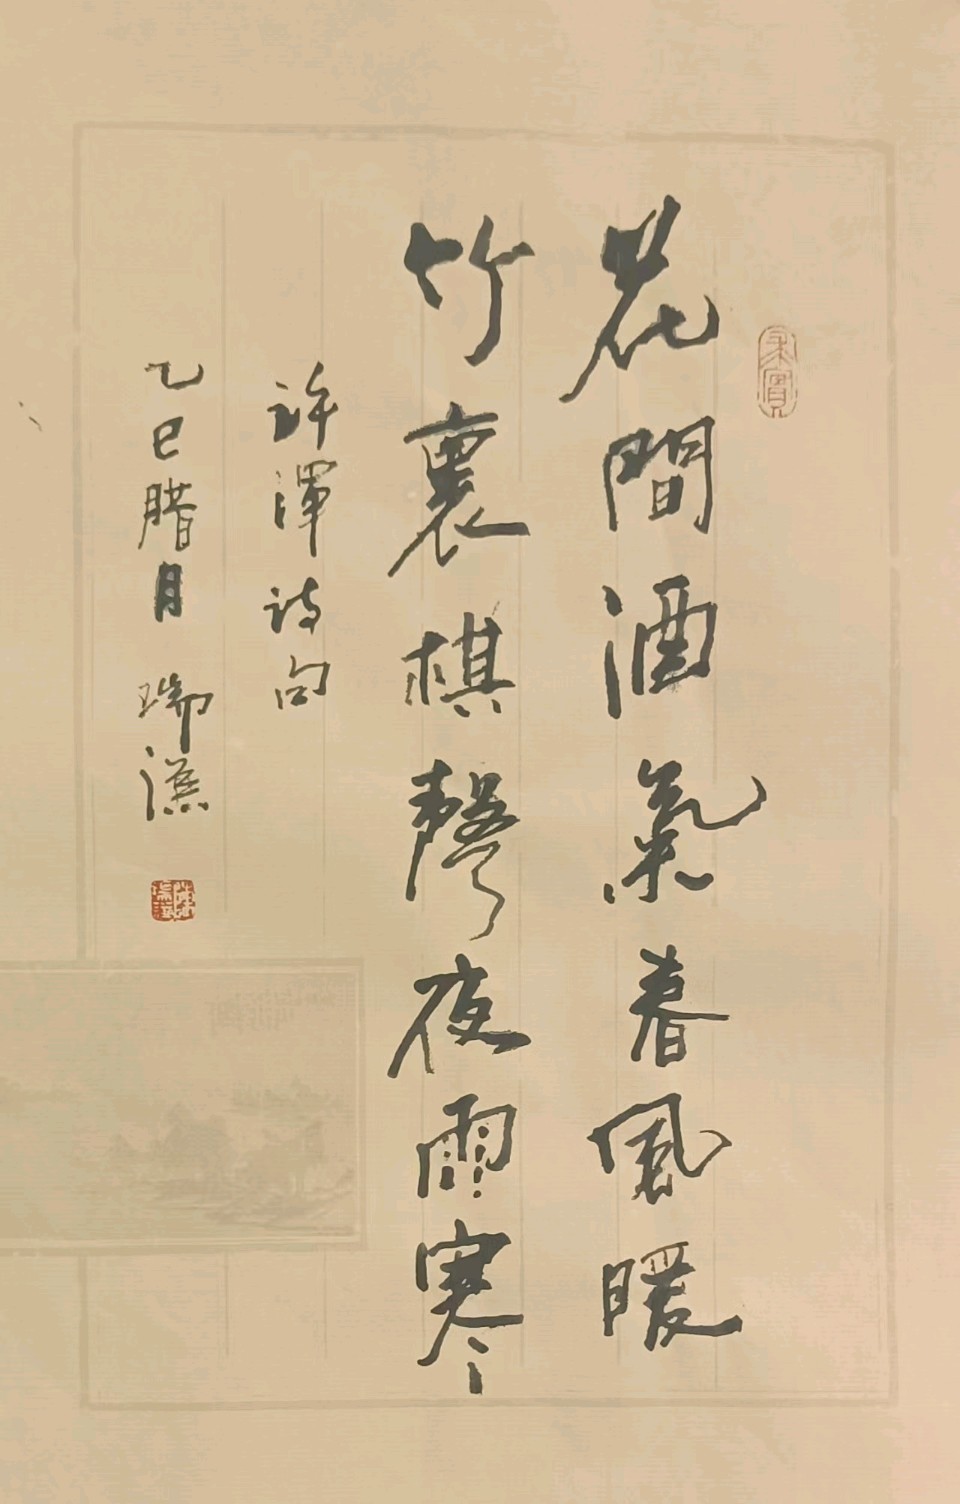 花間酒氣春風暖
竹裏棋聲夜雨寒
許渾詩句
乙巳腊月 瑞濮